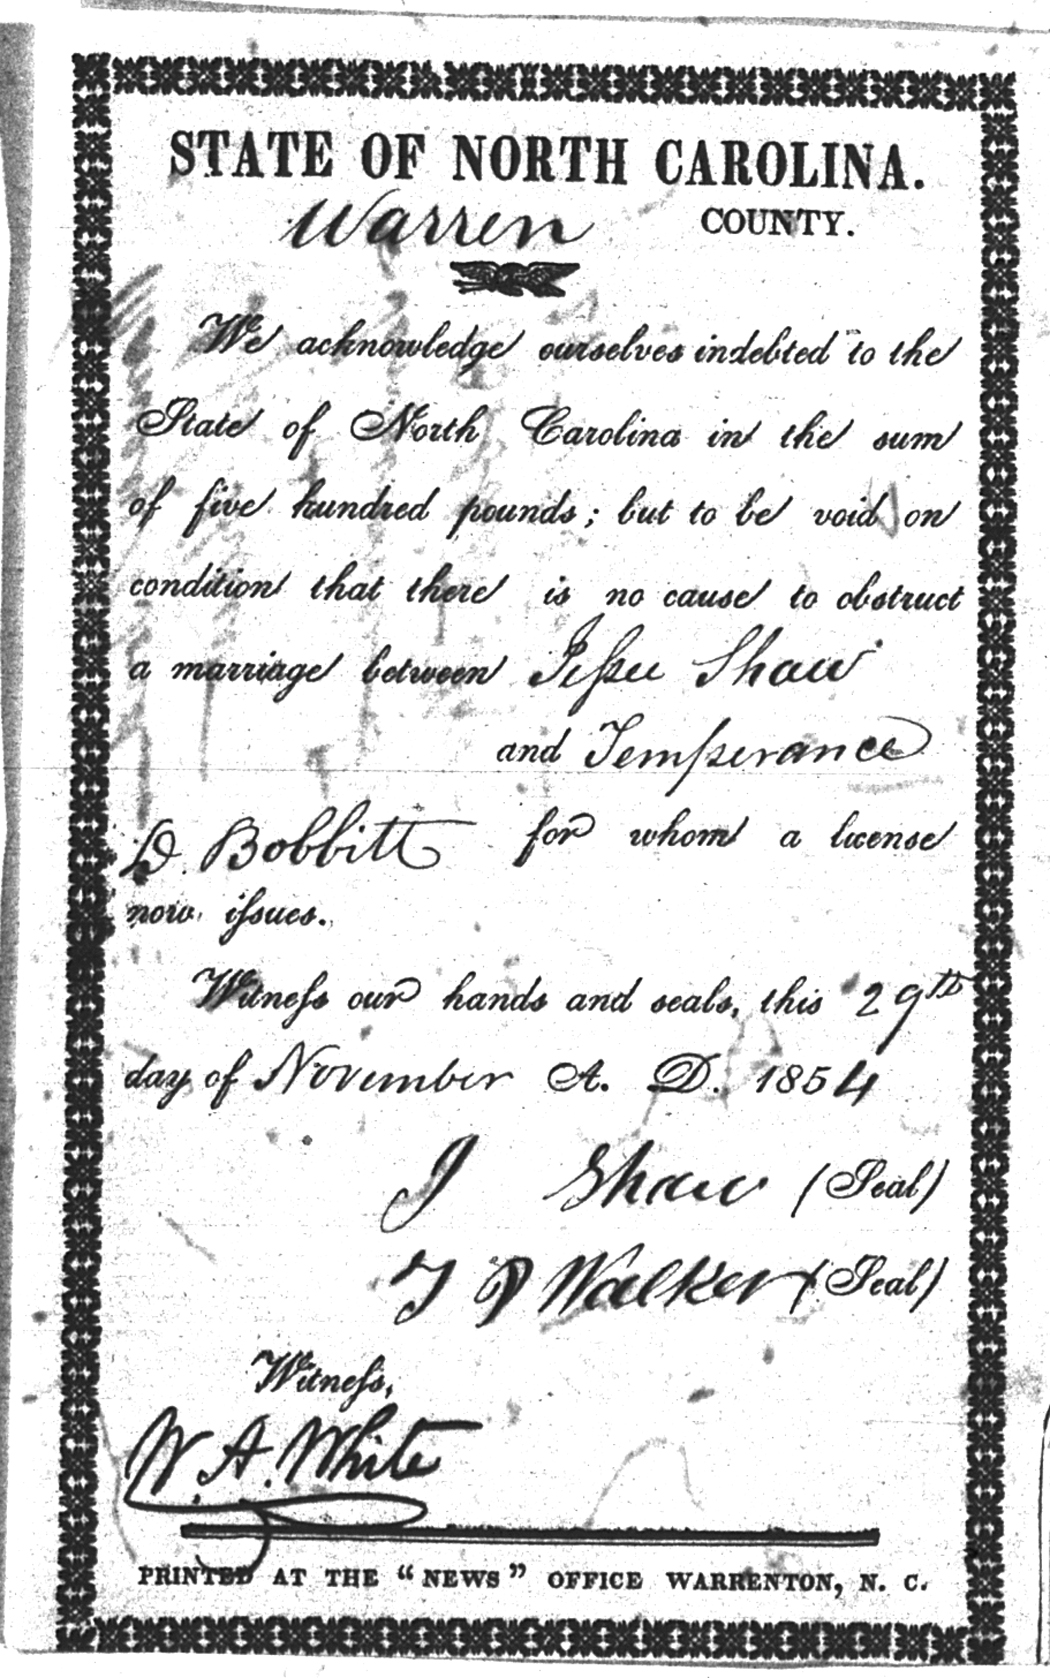 STATE OF NORTH CAROLINA.
Warren COUNTY.
We acknowledge ourselves indebted to the
State of North Carolina in the sum
of five hundred pounds; but to be void on
condition that there is no cause to obstruct
a marriage between Jesse Shaw
and Temperance
D. Bobbitt for whom a license
now issues.
Witness our hands and seals, this 29th
day of November A. D. 1854
J Shaw (Seal)
T P Walker (Seal)
Witness,
W. A. White
PRINTED AT THE "NEWS" OFFICE WARRENTON, N. C.